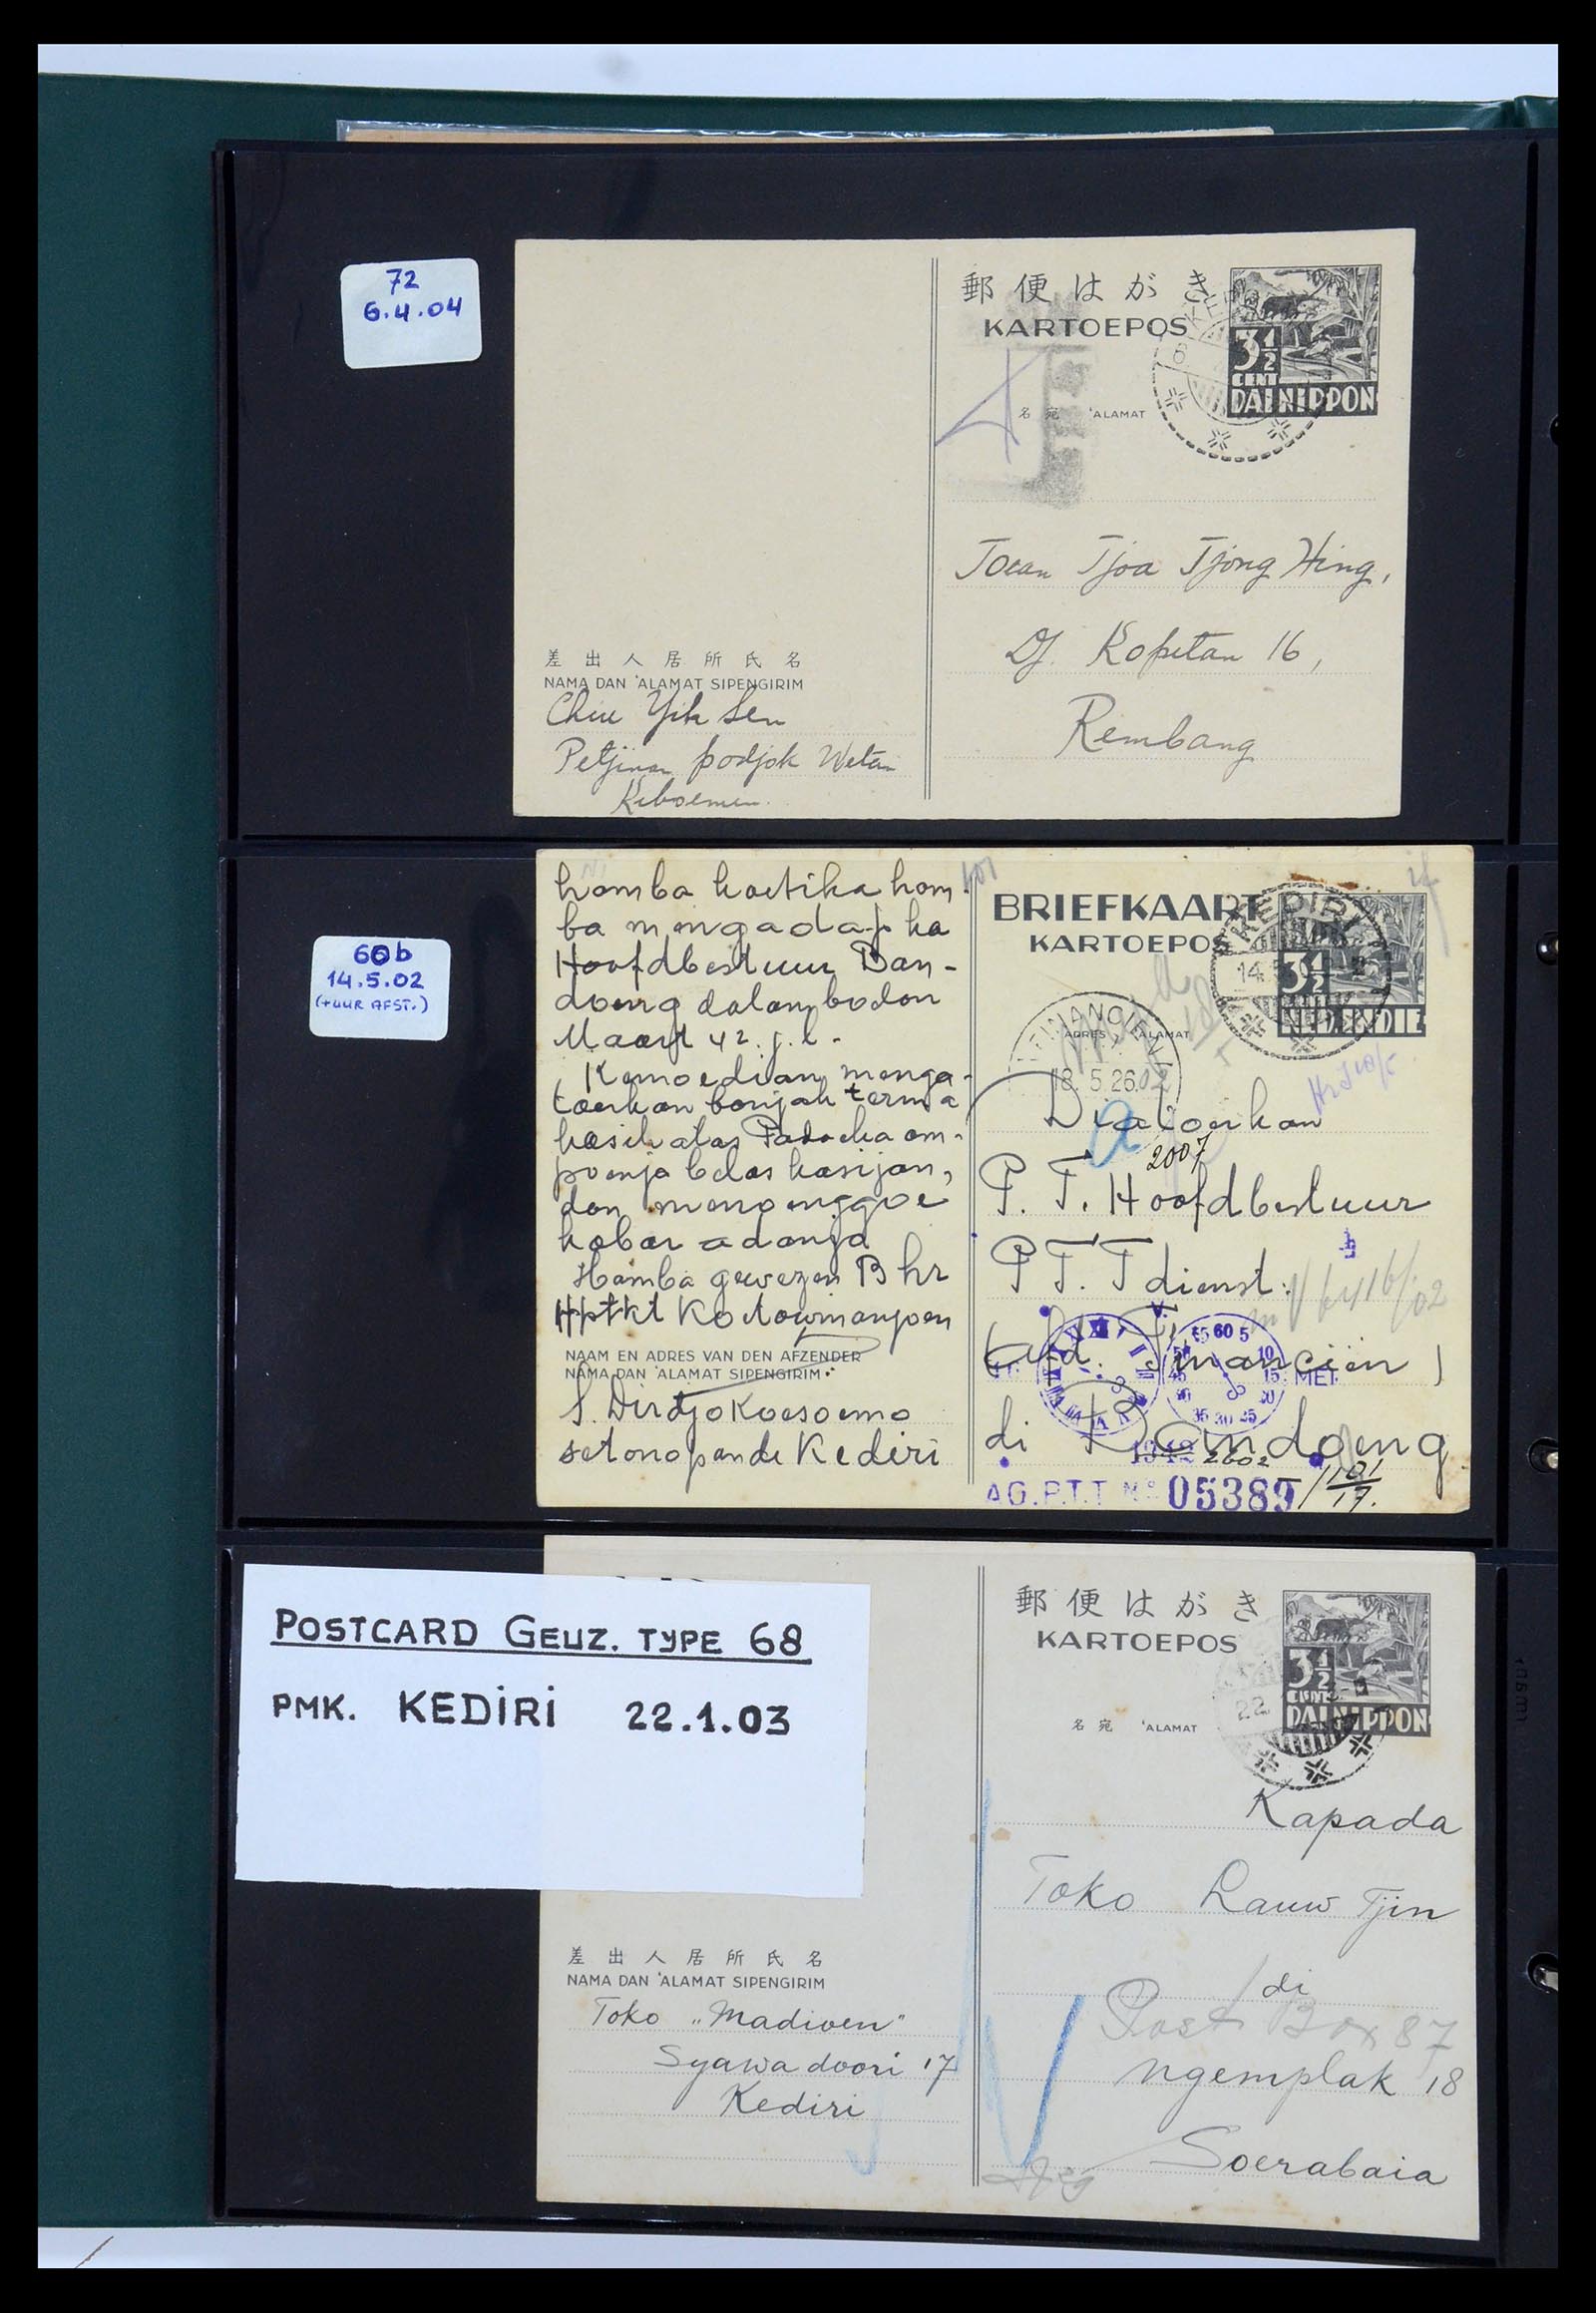 72
6.4.04
郵便はがき
KARTOEPOS
3½
CENT
DAI NIPPON
名宛 'ALAMAT
Toean Tjoa Tjong Hing,
Dj. Kapitan 16,
Rembang
差出人居所氏名
NAMA DAN 'ALAMAT SIPENGIRIM
Chiu Yih Sen
Petjinan podjok Wetan
Keboemen
60b
14.5.02
(+UUR AFST.)
hamba koetika ham
ba mengadap ka
Hoofdbestuur Ban-
doeng dalam boelan
Maart 42. j.l.
Kemoedian menga-
toerkan banjak terima
kasih atas Padoeka am-
poenja belas kasijan,
dan menoenggoe
kabar adanja
Hamba gewezen Bhr
Hptkt Kertowmanjoen
NAAM EN ADRES VAN DEN AFZENDER
NAMA DAN 'ALAMAT SIPENGIRIM
S. Dirdjokoesoemo
setonopande Kediri
101
BRIEFKAART
KARTOEPOS
KEDIRI
14
3½
NED. INDIE
FINANCIEN
ADRES ALAMAT
18.5.2602
Diatoerkan
2007
P. T. Hoofdbestuur
P T. T dienst.
(afd. Financiën)
60 5 10 15
MEI
di Bandoeng
1942 2602
AG.P.T.T No 05389 / 1101
17.
POSTCARD GEUZ. TYPE 68
PMK. KEDIRI 22.1.03
郵便はがき
KARTOEPOS
22
3½
CENT
DAI NIPPON
名宛 'ALAMAT
Kapada
Toko Lauw Tjin
di
Post Box 87
Ngemplak 18
Soerabaia
差出人居所氏名
NAMA DAN 'ALAMAT SIPENGIRIM
Toko „Madioen"
Syawa doori 17
Kediri